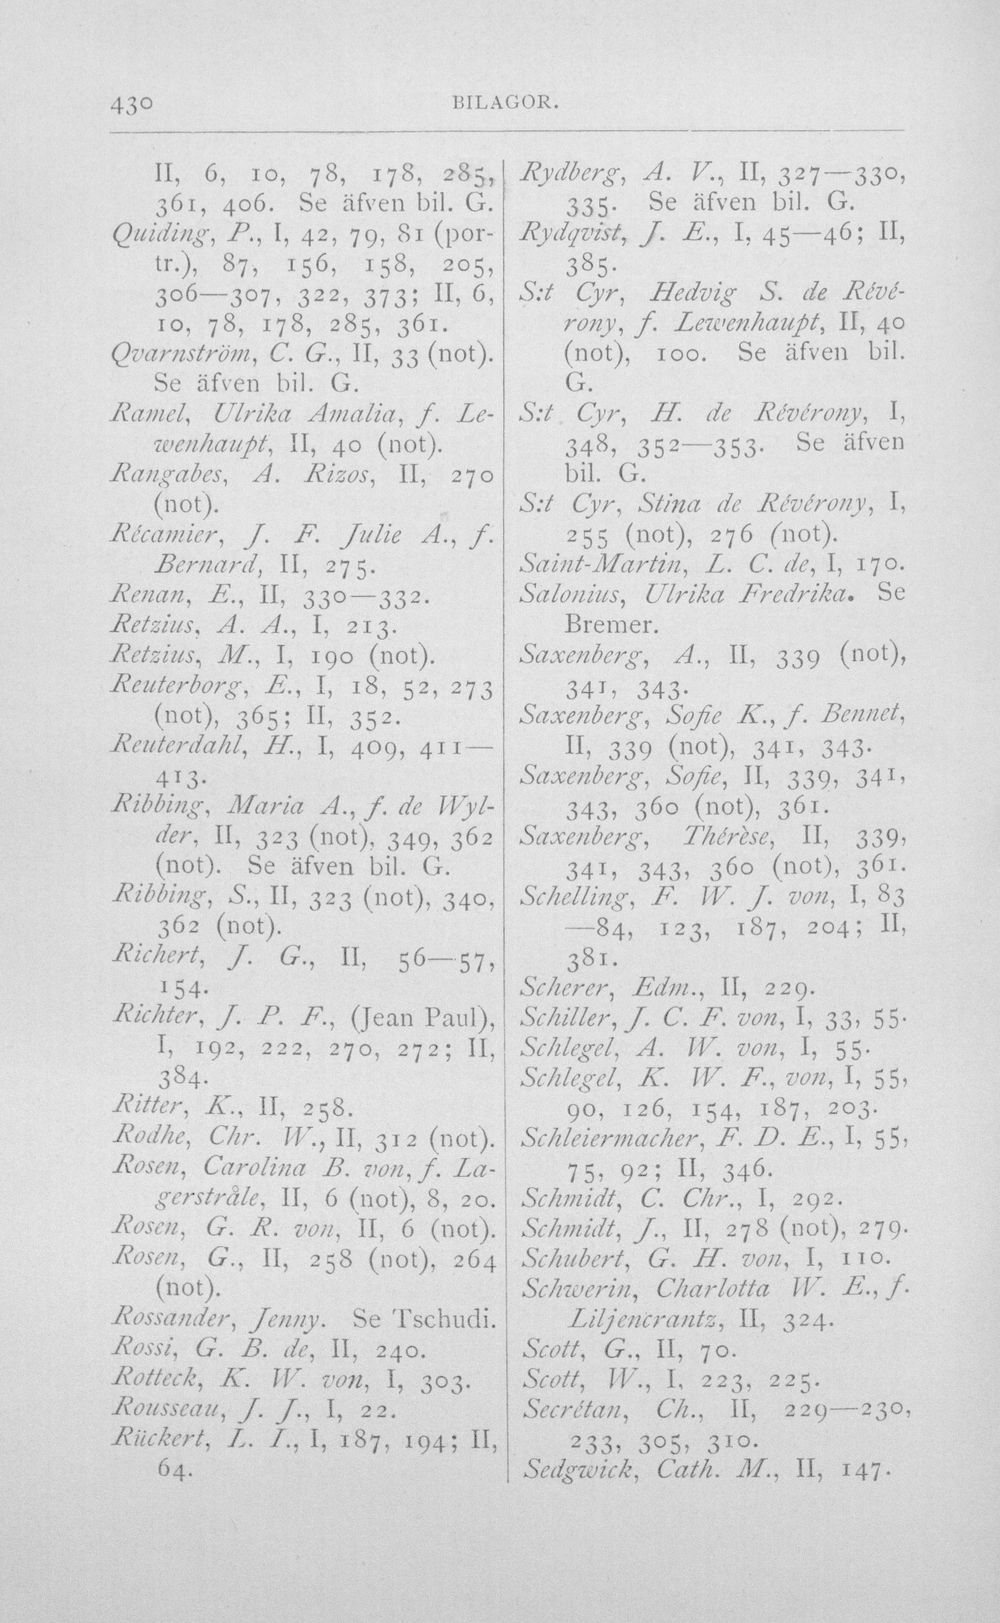 430
BILAGOR.
II, 6, 10, 78, 178, 285,
361, 406. Se äfven bil. G.
Quiding, P., I, 42, 79, 81 (por-
tr.), 87, 156, 158, 205,
306—307, 322, 373; II, 6,
10, 78, 178, 285, 361.
Qvarnström, C. G., II, 33 (not).
Se äfven bil. G.
Ramel, Ulrika Amalia, f. Le-
wenhaupt, II, 40 (not).
Rangabes, A. Rizos, II, 270
(not).
Récamier, J. F. Julie A., f.
Bernard, II, 275.
Renan, E., II, 330—332.
Retzius, A. A., I, 213.
Retzius, M., I, 190 (not).
Reuterborg, E., I, 18, 52, 273
(not), 365; II, 352.
Reuterdahl, H., I, 409, 411—
413.
Ribbing, Maria A., f. de Wyl-
der, II, 323 (not), 349, 362
(not). Se äfven bil. G.
Ribbing, S., II, 323 (not), 340,
362 (not).
Richert, J. G., II, 56—57,
154.
Richter, J. P. F., (Jean Paul),
I, 192, 222, 270, 272; II,
384.
Ritter, K., II, 258.
Rodhe, Chr. W., II, 312 (not).
Rosen, Carolina B. von, f. La-
gerstråle, II, 6 (not), 8, 20.
Rosen, G. R. von, II, 6 (not).
Rosen, G., II, 258 (not), 264
(not).
Rossander, Jenny. Se Tschudi.
Rossi, G. B. de, II, 240.
Rotteck, K. W. von, I, 303.
Rousseau, J. J., I, 22.
Rückert, L. I., I, 187, 194; II,
64.
Rydberg, A. V., II, 327—330,
335. Se äfven bil. G.
Rydqvist, J. E., I, 45—46; II,
385.
S:t Cyr, Hedvig S. de Révé-
rony, f. Lewenhaupt, II, 40
(not), 100. Se äfven bil.
G.
S:t Cyr, H. de Révérony, I,
348, 352—353. Se äfven
bil. G.
S:t Cyr, Stina de Révérony, I,
255 (not), 276 (not).
Saint-Martin, L. C. de, I, 170.
Salonius, Ulrika Fredrika. Se
Bremer.
Saxenberg, A., II, 339 (not),
341, 343.
Saxenberg, Sofie K., f. Bennet,
II, 339 (not), 341, 343.
Saxenberg, Sofie, II, 339, 341,
343, 360 (not), 361.
Saxenberg, Thérèse, II, 339,
341, 343, 360 (not), 361.
Schelling, F. W. J. von, I, 83
—84, 123, 187, 204; II,
381.
Scherer, Edm., II, 229.
Schiller, J. C. F. von, I, 33, 55.
Schlegel, A. W. von, I, 55.
Schlegel, K. W. F., von, I, 55,
90, 126, 154, 187, 203.
Schleiermacher, F. D. E., I, 55,
75, 92; II, 346.
Schmidt, C. Chr., I, 292.
Schmidt, J., II, 278 (not), 279.
Schubert, G. H. von, I, 110.
Schwerin, Charlotta W. E., f.
Liljencrantz, II, 324.
Scott, G., II, 70.
Scott, W., I, 223, 225.
Secrétan, Ch., II, 229—230,
233, 305, 310.
Sedgwick, Cath. M., II, 147.